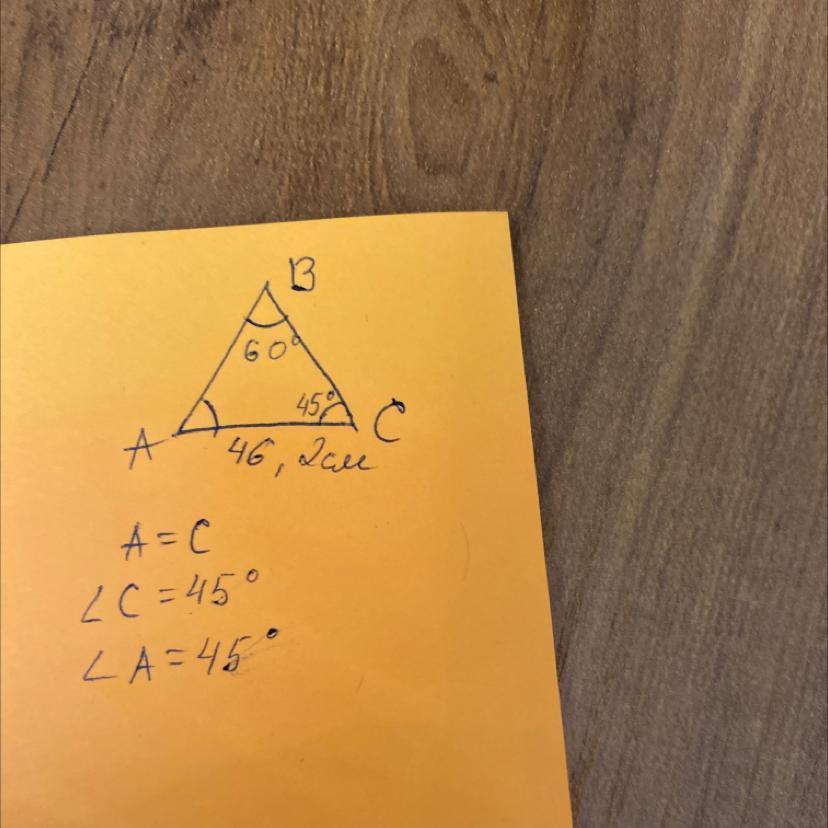 B
60°
45°
A
C
46, 2см
A = C
∠C = 45°
∠A = 45°